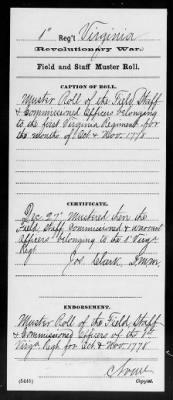 1st Reg't Virginia
Revolutionary War.
Field and Staff Muster Roll.
CAPTION OF ROLL.
Muster Roll of the Field, Staff
& Commissioned Officers belonging
to the first Virginia Regiment for
the months of Oct & Nov. 1778
CERTIFICATE.
Dec. 27th Mustered then the
Field, Staff, Commissioned & warrant
Officers belonging to the 1st Virga
Regt
Jos Clark, D.M.M.
ENDORSEMENT.
Muster Roll of the Field, Staff
& Commissioned Officers of the 1st
Virga Regt. for Oct. & Nov. 1778
Copyist.